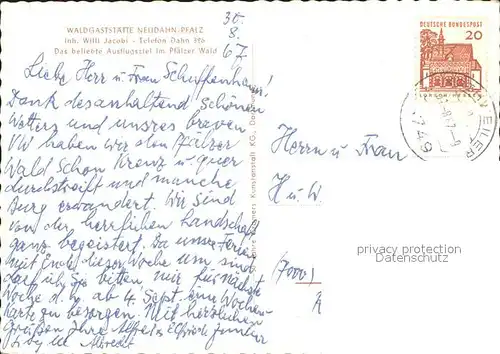 WALDGASTSTÄTTE NEUDAHN-PFALZ
Inh. Willi Jacobi - Telefon Dahn 396
Das beliebte Ausflugsziel im Pfälzer Wald
30.
8.
67
Liebe Herr u. Frau
Dank des anhaltend schönen
Wetters und unseres braven
VW haben wir den Pfälzer
Wald schon kreuz u. quer
durchstreift und manche
Burg erwandert. Wir sind
von der herrlichen Landschaft
ganz begeistert. Da unsere Ferien
mit Ende dieser Woche um sind
darf ich Sie bitten mir für nächste
Woche d. h. ab 4. Sept. eine Wochen-
karte zu besorgen. Mit herzlichen
Grüßen Ihre Alfred u. Elfriede
DEUTSCHE BUNDESPOST
20
LORSCH/HESSEN
EILER
749
Herrn u Frau
H u W
(7000)
privacy protection
Datenschutz
Kunstanstalt KG.,